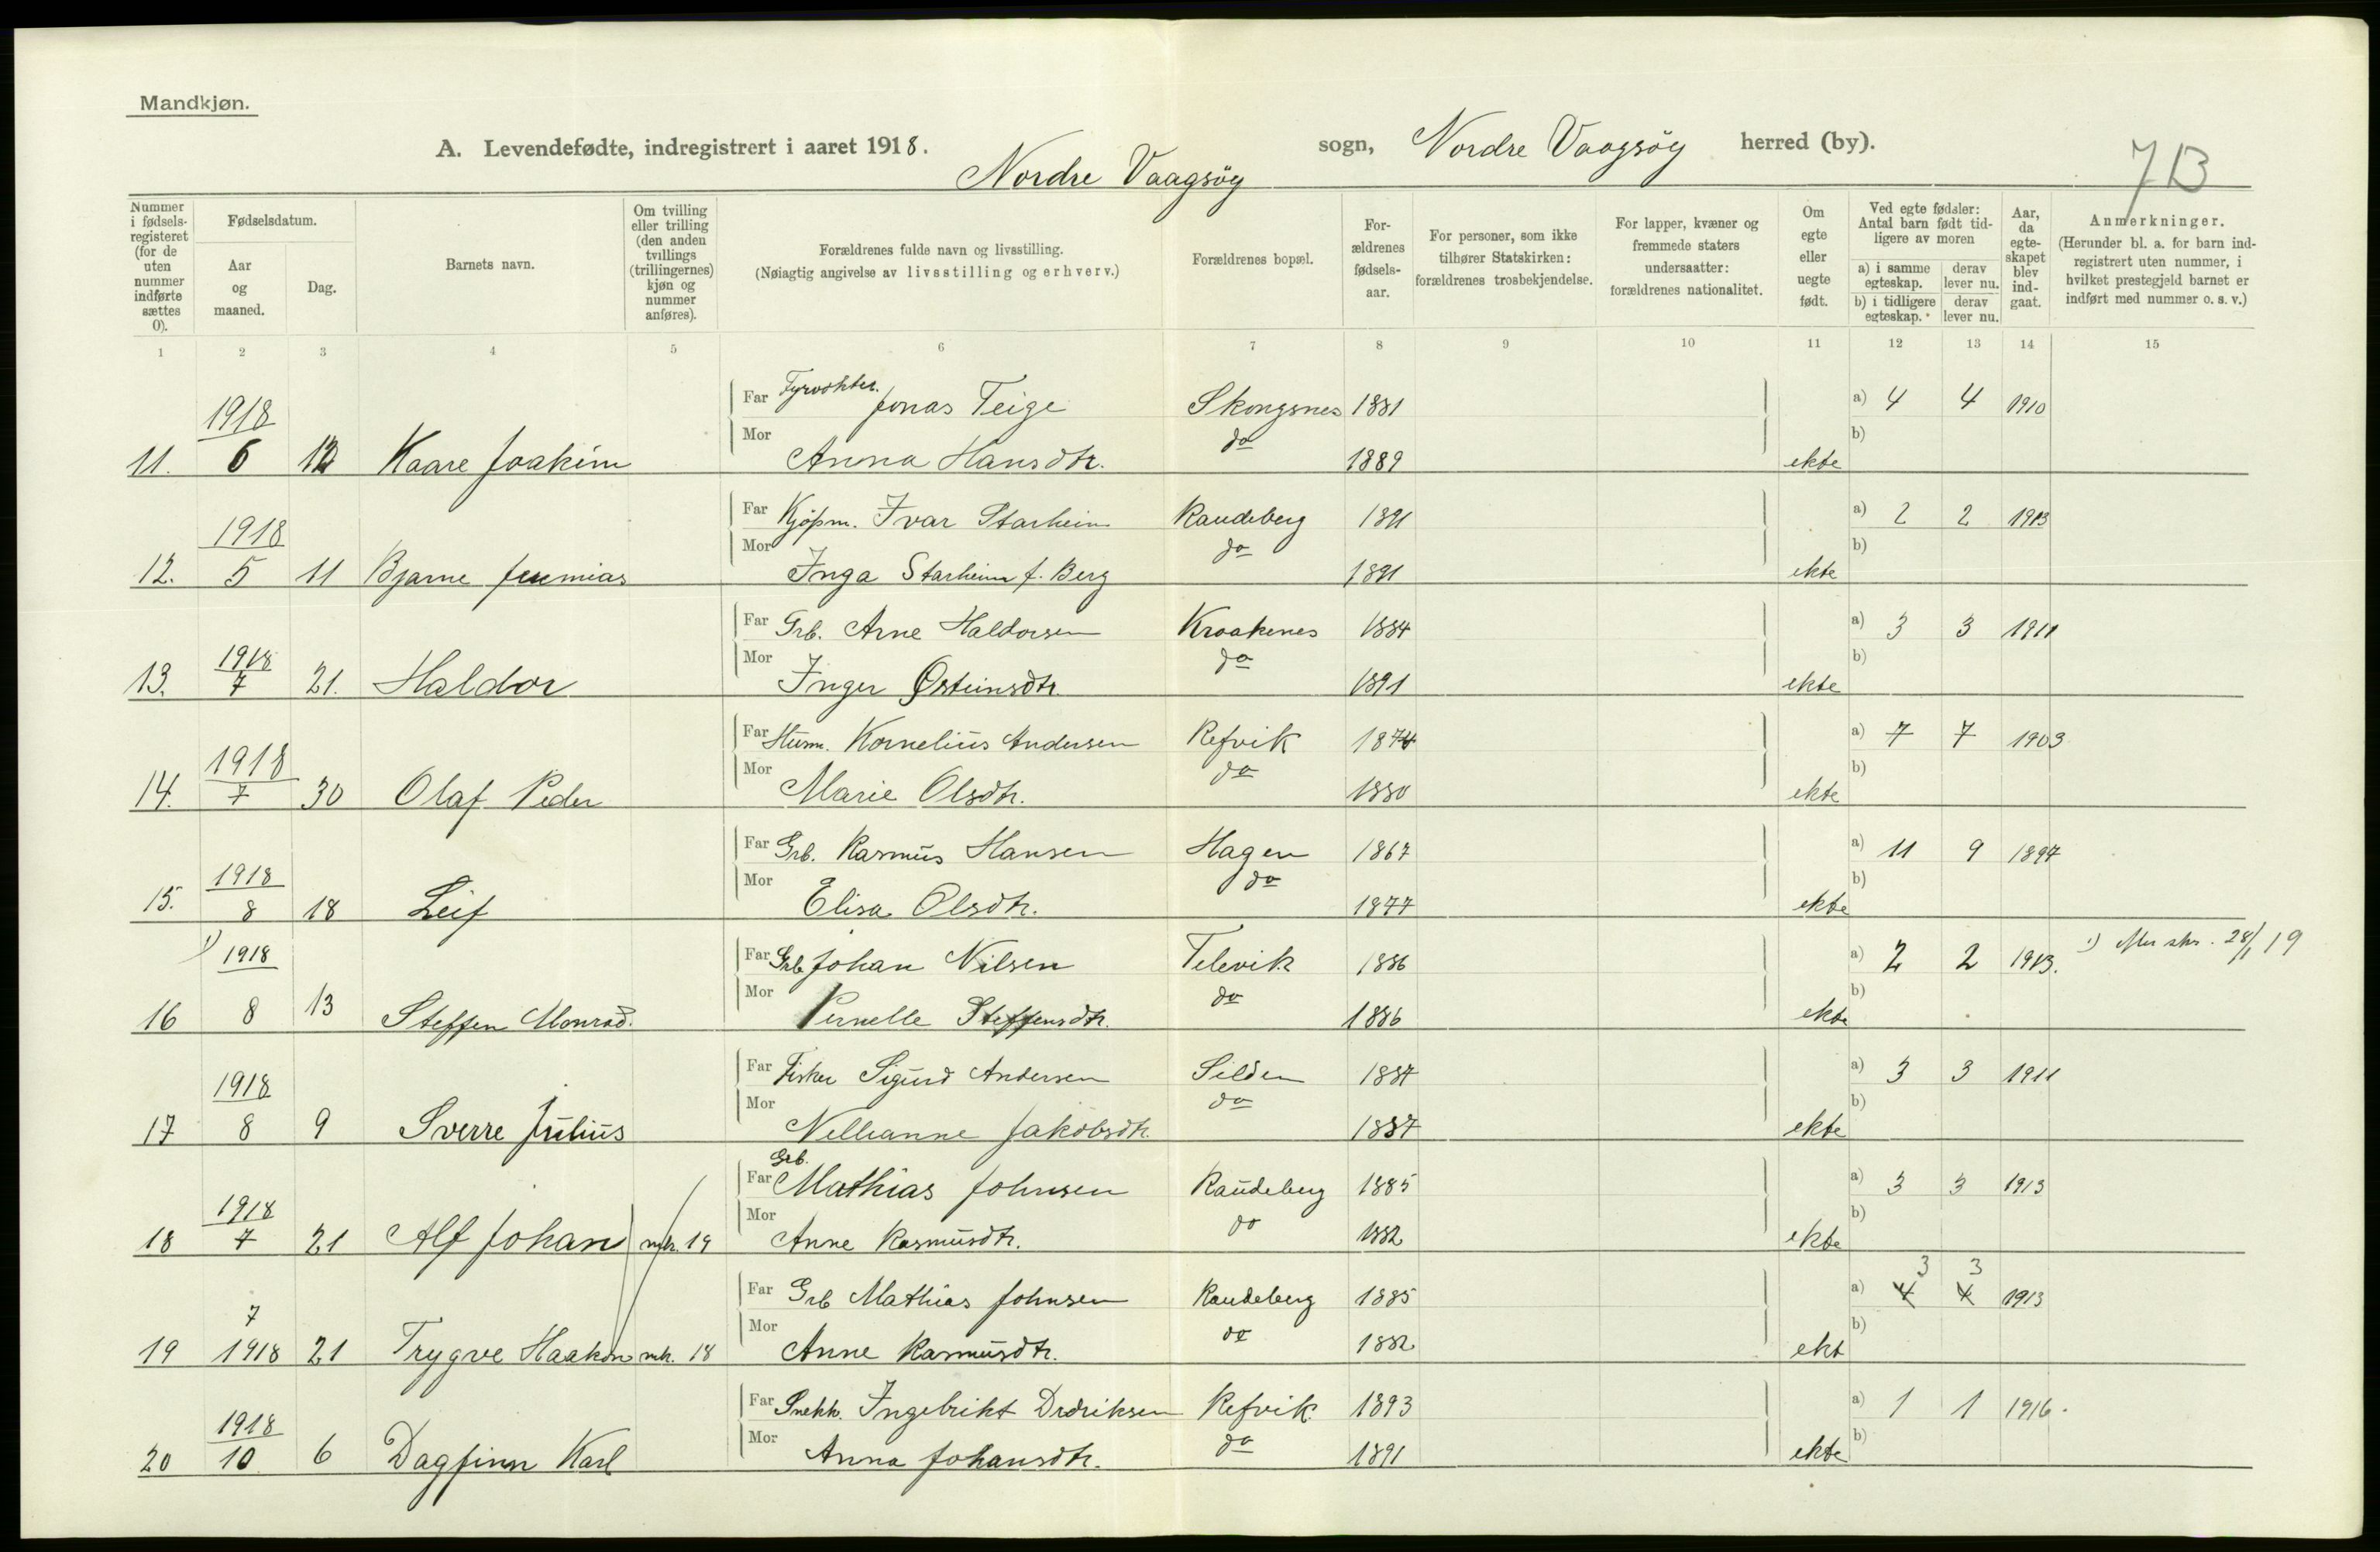 Mandkjøn.
A. Levendefødte, indregistrert i aaret 1918. Nordre Vaagsöy sogn, Nordre Vaagsöy herred (by).
7 B
Nummer i fødsels-registeret (for de uten nummer indførte sættes 0).
Fødselsdatum.
Aar og maaned.
Dag.
Barnets navn.
Om tvilling eller trilling (den anden tvillings (trillingernes) kjøn og nummer anføres).
Forældrenes fulde navn og livsstilling.
(Nøiagtig angivelse av livsstilling og erhverv.)
Forældrenes bopæl.
For-ældrenes fødsels-aar.
For personer, som ikke tilhører Statskirken: forældrenes trosbekjendelse.
For lapper, kvæner og fremmede staters undersaatter: forældrenes nationalitet.
Om egte eller uegte født.
Ved egte fødsler: Antal barn født tid-ligere av moren
a) i samme egteskap.
derav lever nu.
b) i tidligere egteskap.
derav lever nu.
Aar, da egte-skapet blev ind-gaat.
Anmerkninger.
(Herunder bl. a. for barn ind-registrert uten nummer, i hvilket prestegjeld barnet er indført med nummer o. s. v.)
1 2 3 4 5 6 7 8 9 10 11 12 13 14 15
Far Fyrvokter. Jonas Teige Skongsnes 1881 a) 4 4 1910
11. 1918 6 12 Kaare Joakim Mor Anna Hansdtr. do 1889 ekte b)
Far Kjöpm. Ivar Starheim Raudeberg 1891 a) 2 2 1913
12. 1918 5 11 Bjarne Jeremias Mor Inga Starheim f. Berg do 1891 ekte b)
Far Grb. Arne Haldorsen Kraakenes 1884 a) 3 3 1911
13. 1918 7 21. Haldor Mor Inger Østeinsdtr. do 1891 ekte b)
Far Husm. Kornelius Andersen Refvik 1874 a) 7 7 1903
14. 1918 7 30 Olaf Peder Mor Marie Olsdtr. do 1880 ekte b)
Far Grb. Rasmus Hansen Hagen 1867 a) 11 9 1897
15. 1918 8 18 Leif Mor Elisa Olsdtr. do 1877 ekte b)
Far Grb Johan Nilsen Televik 1886 a) 2 2 1913. 1) skr. 28/1 19
16 1) 1918 8 13 Steffen Monrad. Mor Pernelle Steffensdtr. do 1886 ekte b)
Far Fisker Sigurd Andersen Silden 1887 a) 3 3 1911
17 1918 8 9 Sverre Julius Mor Nellianne Jakobsdtr. do 1887 ekte b)
Far Grb. Mathias Johnsen Raudeberg 1885 a) 3 3 1913
18 1918 7 21 Alf Johan mk. 19 Mor Anne Rasmusdtr. do 1882 ekte b)
Far Grb Mathias Johnsen Raudeberg 1885 a) 4 3 4 3 1913
19 7 1918 21 Trygve Haakon mk. 18 Mor Anne Rasmusdtr. do 1882 ekt b)
Far Snekk. Ingebrikt Didriksen Refvik 1893 a) 1 1 1916.
20 1918 10 6 Dagfinn Karl Mor Anna Johansdtr. do 1891 ekte b)